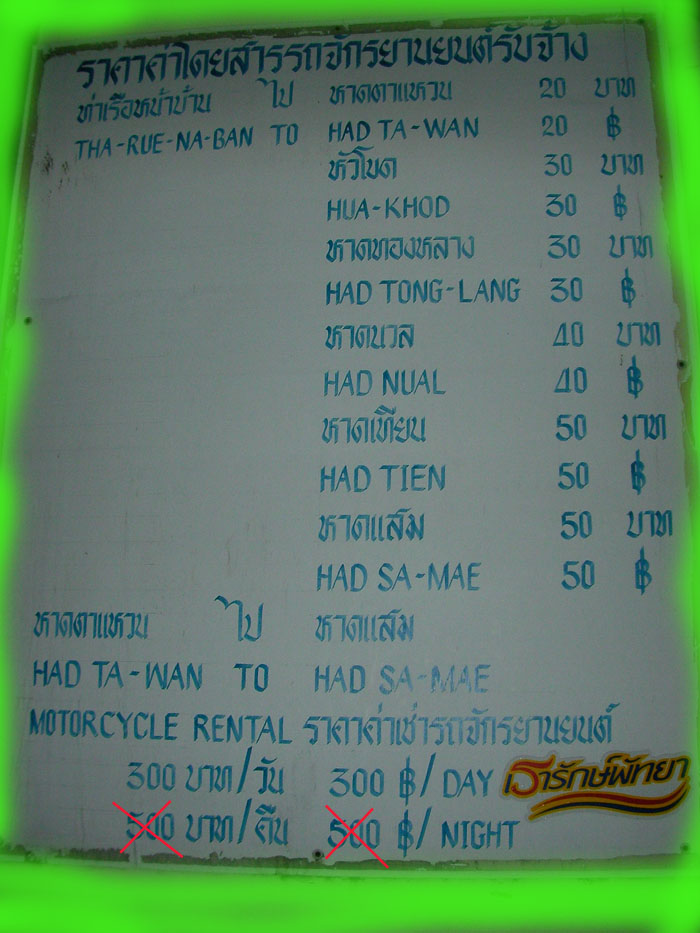 ราคาค่าโดยสารรถจักรยานยนต์รับจ้าง
ท่าเรือหน้าบ้าน ไป หาดตาแหวน 20 บาท
THA-RUE-NA-BAN TO HAD TA-WAN 20 ฿
หัวโขด 30 บาท
HUA-KHOD 30 ฿
หาดทองหลาง 30 บาท
HAD TONG-LANG 30 ฿
หาดนวล 40 บาท
HAD NUAL 40 ฿
หาดเทียน 50 บาท
HAD TIEN 50 ฿
หาดแสม 50 บาท
HAD SA-MAE 50 ฿
หาดตาแหวน ไป หาดแสม
HAD TA-WAN TO HAD SA-MAE
MOTORCYCLE RENTAL ราคาค่าเช่ารถจักรยานยนต์
300 บาท/วัน 300 ฿/DAY
500 บาท/คืน 500 ฿/NIGHT
เรารักษ์พัทยา